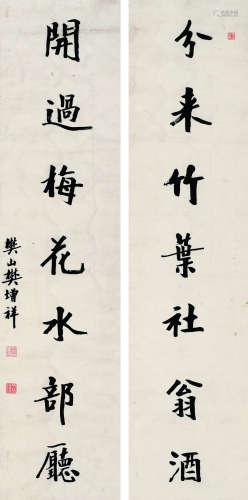 分来竹葉社翁酒
開過梅花水部廳
樊山樊增祥